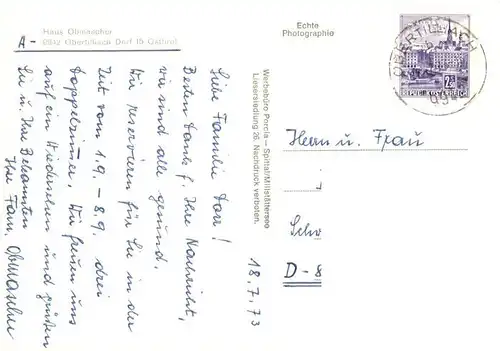 A-
Haus Obmascher
9942 Obertilliach Dorf 15 Osttirol
Echte
Photographie
OBERTILLIACH
REPUBLIK ÖSTERREICH
Werbebüro Porcia – Spittal/Millstättersee
Lieserssiedlung 26 Nachdruck verboten.
Liebe Familie Dorr!
Besten Dank f. Ihre Nachricht,
wir sind alle gesund.
Wir reservieren für Sie in der
Zeit vom 1.9. – 8.9. drei
Doppelzimmer. Wir freuen uns
auf ein Wiedersehen und grüßen
Sie u. Ihre Bekannten
Ihre Fam. Obmascher
18.7.73
Herrn u. Frau
Schw
D-8